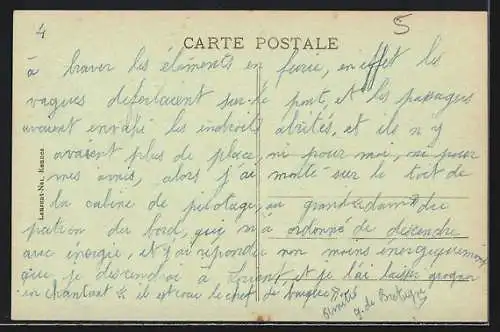 4
5
CARTE POSTALE
à braver les éléments en furie, en effet les
vagues déferlaient sur le pont, et les passagers
avaient envahi les endroits abrités, et ils n'y
avaient plus de place, ni pour moi, ni pour
mes amis, alors j'ai monté sur le toit de
la cabine de pilotage, au grand dam du
patron du bord, qui m'a ordonné de descendre
avec énergie, et j'ai répondu non moins énergiquement
que je descendrai à Lorient et je l'ai laissé grogner
en chantant il est cocu le chef de
de Bretagne
Laurent-Nel, Rennes